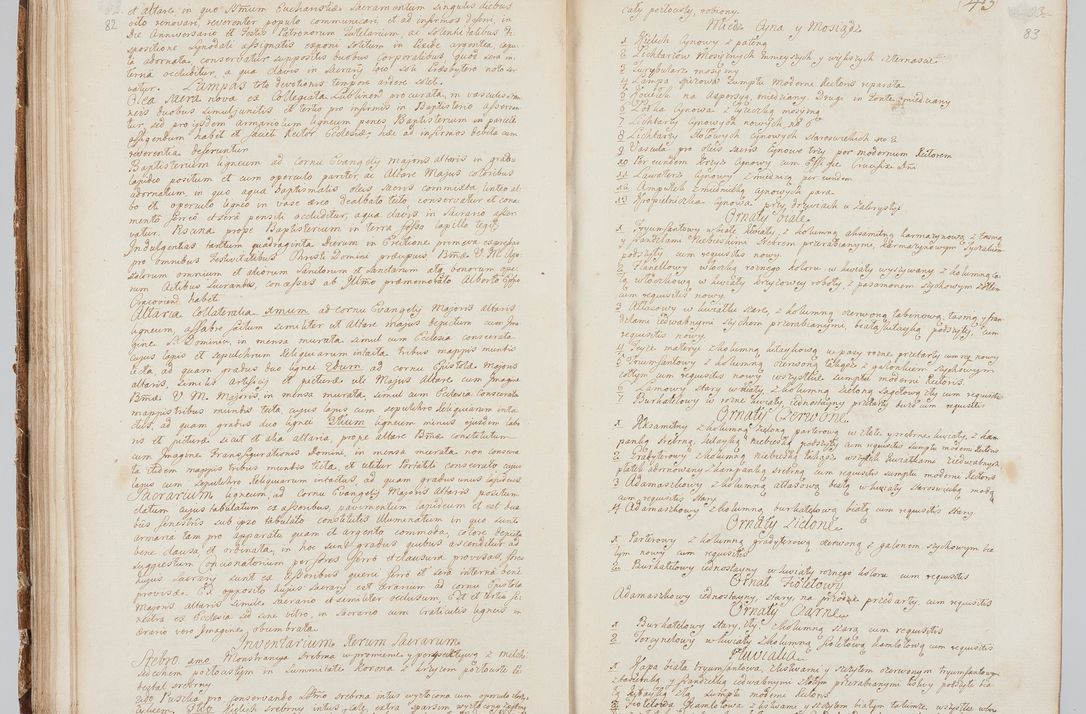 82
et altare, in quo Smum Eucharistiæ Sacramentum singulis diebus
octo renovari, reverenter populo communicari et ad infirmos deferri, in
die Anniversario et Festis Patronorum Tutelarium, ac Solennitatibus
spositione Synodali assignatis exponi solitum in Pixide argentea
ta adornata, conservatur suppositis duobus Corporalibus quod sera in
terna occluditur, a qua clavis in Sacrario loco soli Presbytero noto
vatur. Lampas toto devotionis tempore ardere solet.
Olea Sacra nova ex Collegiata Lublinen procurata, in vasculis
neis duobus simul junctis et tertio pro infirmis in Baptisterio
tur, sed pro ijsdem Armariolum ligneum penes Baptisterium in pariete
affigendum habet et favet Rector Ecclesiæ, hæc ad infirmos debita cum
reverentia deferuntur
Baptisterium ligneum ad cornu Evangelij majoris altaris in gradu
lapideo positum et cum operculo pariter, ac Altare Majus coloribus
adornatum, in quo aqua Baptismatis oleis sacris commixta linteo al
bo et operculo ligneo in vase æreo dealbato tecto conservatur et
mento ferreo et sera pensili occluditur, a qua clavis in Sacrario
vatur. Piscina prope Baptisterium in terra fossa lapillo tegit
Indulgentias tantum quadraginta dierum in Erectione primæva expressas
pro omnibus Festivitatibus Christi Domini præcipuis Bmæ V. M. Apo
stolorum omnium et aliorum Sanctorum et Sanctarum atq bonorum ope
rum Actibus lucrandis, concessas ab Illmo prænominato Alberto Eppo
Cracovien habet
Altaria Collateralia 1mum ad cornu Evangelij Majoris altaris
ligneum, affabre factum similiter ut Altare majus depictum cum Ima
gine S. Dominici, in mensa murata simul cum Ecclesia consecrata
cujus lapis et sepulchrum Reliquiarum intacta tribus mappis mundis
tecta, ad quam gradus duo lignei 2dum ad cornu Epistolæ Majoris
altaris, simili artificij et picturæ uti Majus Altare cum Imagine
Bmæ V. M. Majoris, in mensa murata, simul cum Ecclesia consecrata
mappis tribus mundis tecta, cujus lapis cum sepulchro Reliquiarum inta
ctus, ad quam gradus duo lignei 3tium ligneum minus ejusdem labo
ris et picturæ sicut et alia altaria, prope altare Bmæ constitutum
cum Imagine Transfigurationis Domini, in mensa murata non consecra
ta itidem mappis tribus mundis tecta, et utitur Portatili consecrato cujus
lapis cum sepulchro Reliquiarum intactus, ad quam gradus unus lapideus
Sacrarium ligneum, ad cornu Evangelij Majoris Altaris positum
clatum cujus tabulatum ex assoribus, pavimentum lapideum et est dua
bus fenestris sub ipso tabulato constitutis illuminatum in quo sunt
armaria tam pro apparatu quam et argento commoda, colore depicta
bene clausa, et ordinata, in hoc sunt gradus quibus ascenditur ad
suggestum Concionatorium per fores ferro et clausura provisas, fores
cujus Sacrarij sunt ex assoribus quercu ferro et sera interna bene
provisæ. Ex opposito hujus Sacrarij est Ærarium ad cornu Epistolæ
Majoris altaris simile Sacrario et similiter occlusum, Est et tertia fe
nestra ex Ecclesia sed sine vitro, in Sacrario cum craticulis ligneis in
Ærario vero Imagine obumbrata
Inventarium Rerum Sacrarum
Srebro 1mo Monstrancya Srebrna w promienie y perspektywą z Melchi
sedechem pozłocistym in summitate Korona z krzyzem pozłocista
bezbal srebrny
2do Puszka pro conservando SSmo srebrna intus wyzłocona cum operculo
3tio Kielich srebrny intus cały, extra sparsim wyzłocony
83
cały pozłocisty, robiony.
Miedz Cyna y Mosiądz
1 Kielich Cynowy z pateną
2 Lichtarzow Mosięznych mnieyszych y większych czternascie
3 Turybularz mosięzny
4 Lampa spizowa sumptu Moderni Rectoris reparata
5 Kociełek na aspersyą miedziany Drugi in Fonte miedziany
6 Łodka Cynowa z łyzeczką mosięzną
7 Lichtarzy Cynowych nowych no 6
8 Lichtarzy Stołowych cynowych staroswieckich no 2
9 Vascula pro oleis sacris Cynowe trzy per modernum Rectorem
10 Per eundem Krzyz Cynowy cum Effigie Crucifixi Dni
11 Lawaterz Cynowy z miednicą per eundem
12 Ampułek z miedniczką cynowych para
13 Kropielniczka Cynowa przy drzwiach w Zakrystyi
Ornaty białe
1 Tryumfantowy w białe kwiaty, z kolumną aksamitną karmazynową z tasmą
y frandzlami Niebieskiemi srebrem przerabianymi, karmazynowym
podszyty cum requisitis nowy.
2 Flanellowy włoczką roznego koloru w kwiaty wyszywany z kolumną
łą włoczkową w kwiaty krzyzowey roboty, z pasamonem szychowym zołtem
cum requisitis nowy.
3 Atłasowy w kwiatki stare, z kolumną czerwoną tabinową, tasmą y fran
dzlami iedwabnymi szychem przerabianymi, białą kitayką podszyty, cum
requisitis nowy.
4 Teyze materyi z kolumną kitaykową w pasy rozne przetarty cum req nowy
5 Tryumfantowy z kolumną czerwoną takąz z galonkiem szychowym
zołtym cum requisitis nowe wszystkie sumptu moderni Rectoris.
6 Lamowy stary w kwiaty, z kolumną zieloną sagetową zły cum requisitis
7 Burkatelowy w rozne kwiaty iednostayny przetarty dwiz cum requisitis
Ornaty Czerwone
1 Aksamitny z kolumną zieloną parterową w złote y srebrne kwiaty, z kam
panką srebrną, kitayką niebieską podszyty cum requisitis sumptu modern Rectoris
2 Gradyterowy z kolumną niebieską takąz kwiatkami iedwabnych
platek adornowany z kampanką srebrną cum requisitis sumptu moderni Rectoris
3 Adamaszkowy z kolumną atłasową białą w kwiaty staroswiecką modą
cum requisitis stary
4 Adamaszkowy z kolumną burkatelową białą cum requisitis stary.
Ornaty Zielone
1 Parterowy z kolumną gradyterową czerwoną z galonem szychowym bia
łym nowy cum requisitis
2 Burkatelowy iednostayny w kwiaty roznego koloru cum requisitis
Ornat Fioletowy
Adamaszkowy iednostayny, stary, na przodzie przedarty cum requisitis
Ornaty Czarne
1 Burkatelowy stary, zły z kolumną szarą cum requisitis
2 Torcynelowy w kwiaty z kolumną fioletową kamlotową cum requisitis
Pluvialia
1 Kapa biała tryumfantowa, z listwami y szczytem czerwonym tryumfantowym
z tasiemką y frandzelką iedwabnymi złotym przerabianymi
tą kitayką sumptu moderni Rectoris
2 Fioletowa Kamlotowa z listwami y szczytem białym tałtowe,